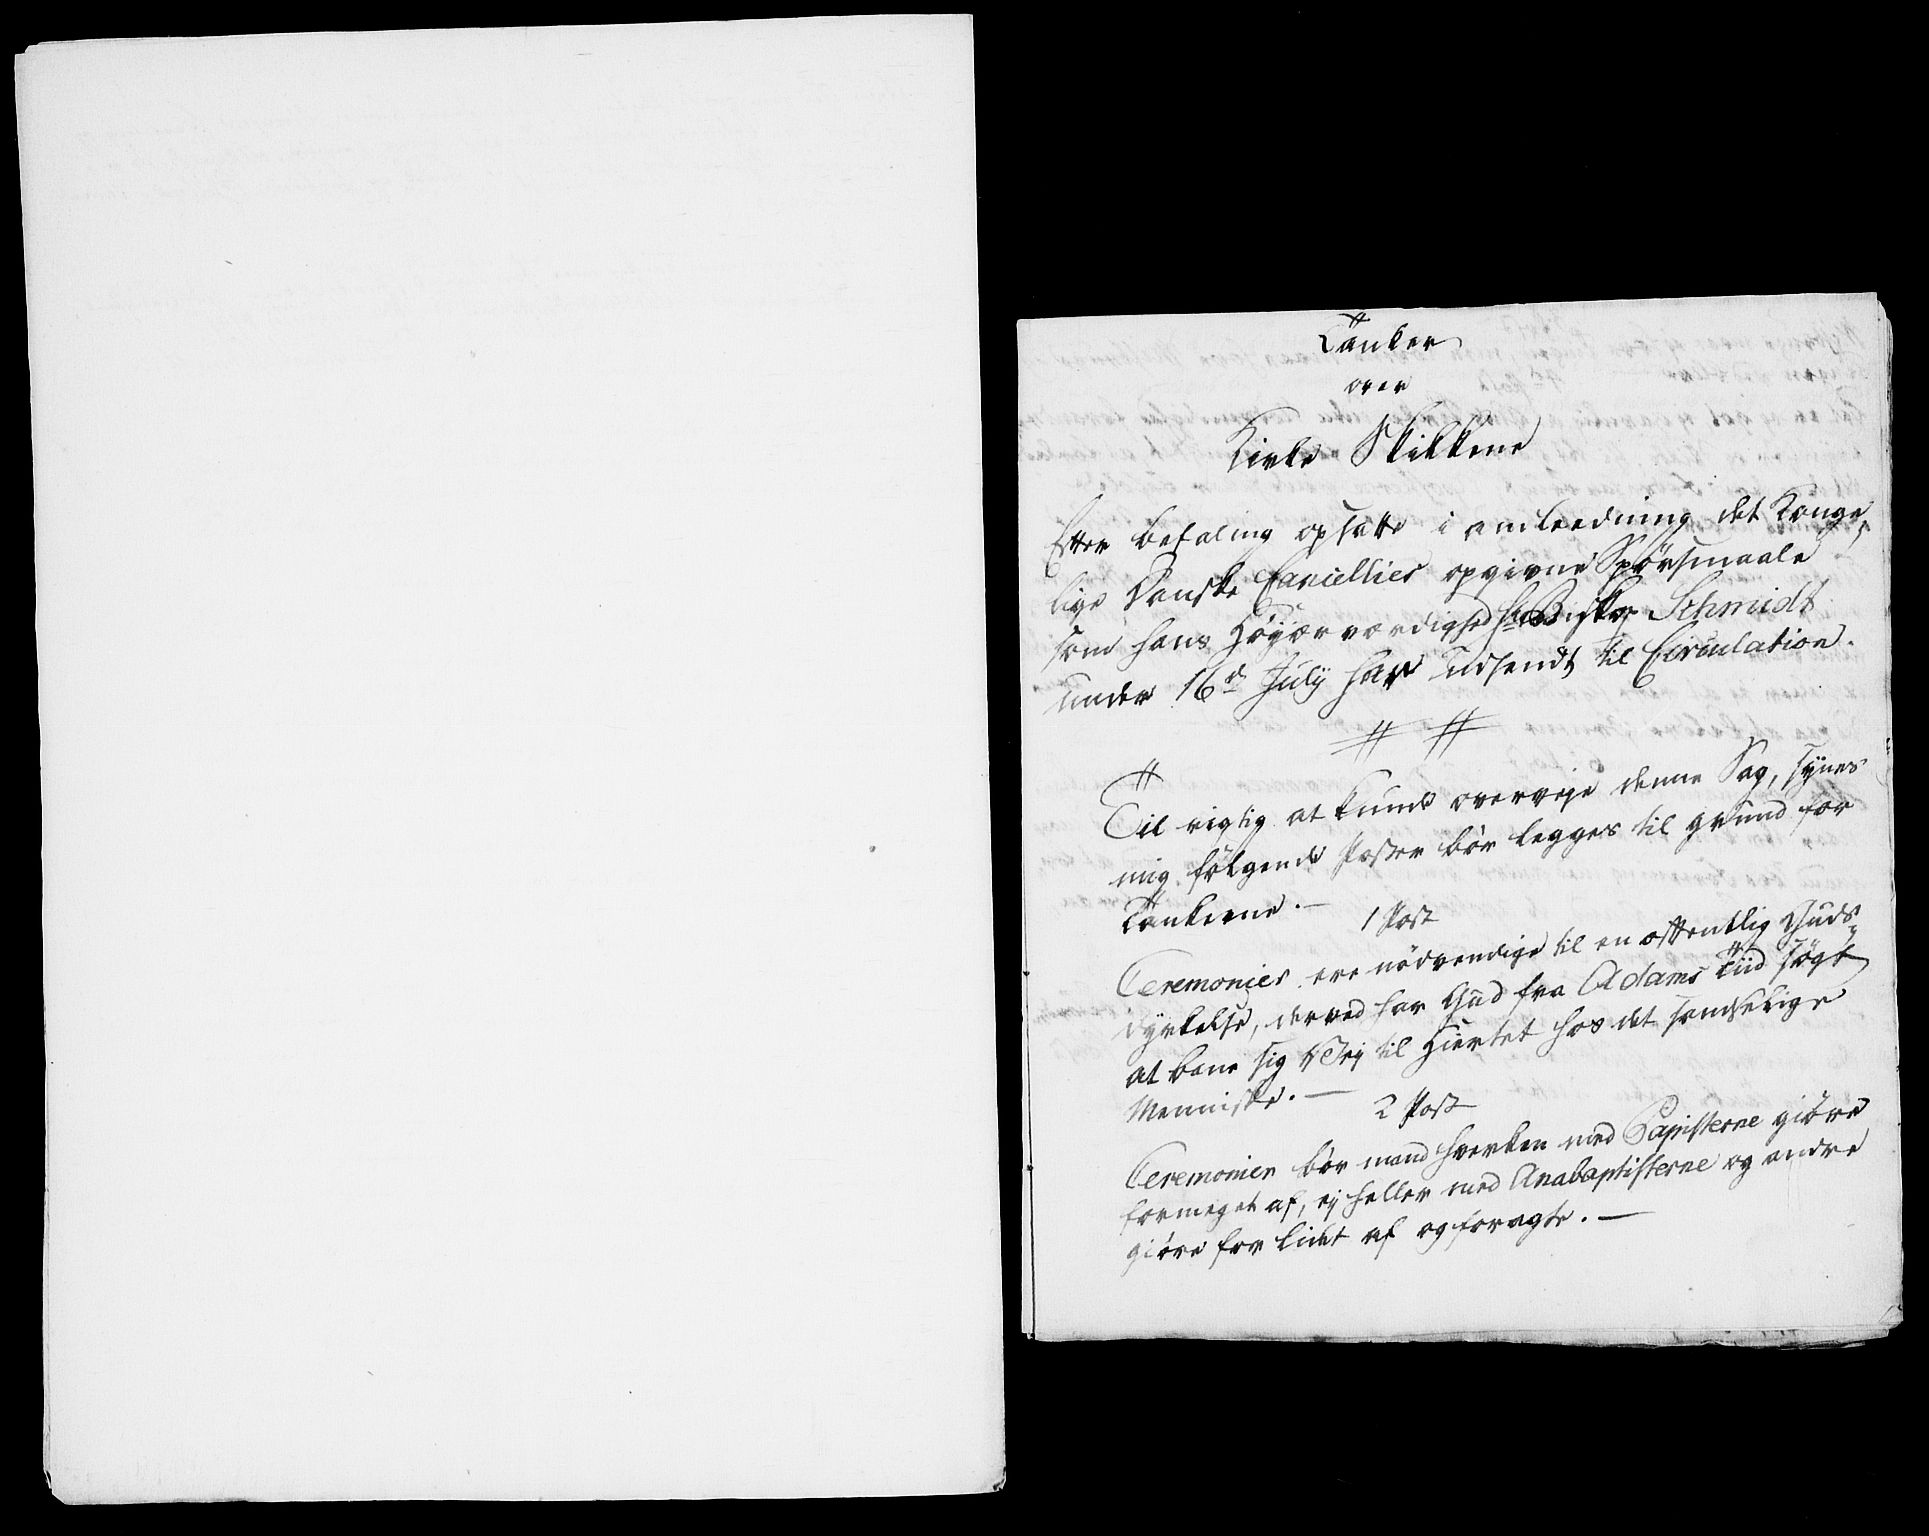 Tanker
over
Kirke Skikkene
Efter befaling opsatte i anleedning det Konge„
lige Danske Cancellies opgivne Spörsmaale
som hans Höyærværdighed Hr Biskop Schmidt
under 16de July har udsendt til Circulation.
Til rigtig at kunde overveje denne Sag, synes
mig fölgende Poster bör legges til grund for
Tankerne. —
1 Post
Ceremonier ere nödvendige til en offentlig Guds„
dyrkelse, derved har Gud fra Adams Tiid sögt
at bane sig Vej til Hiertet hos det sandselige
Menniske. —
2 Post
Ceremonier bör mand hverken med Papisterne giöre
formeget af, ej heller med Anabaptisterne og andre
giöre for lidet af og foragte. —